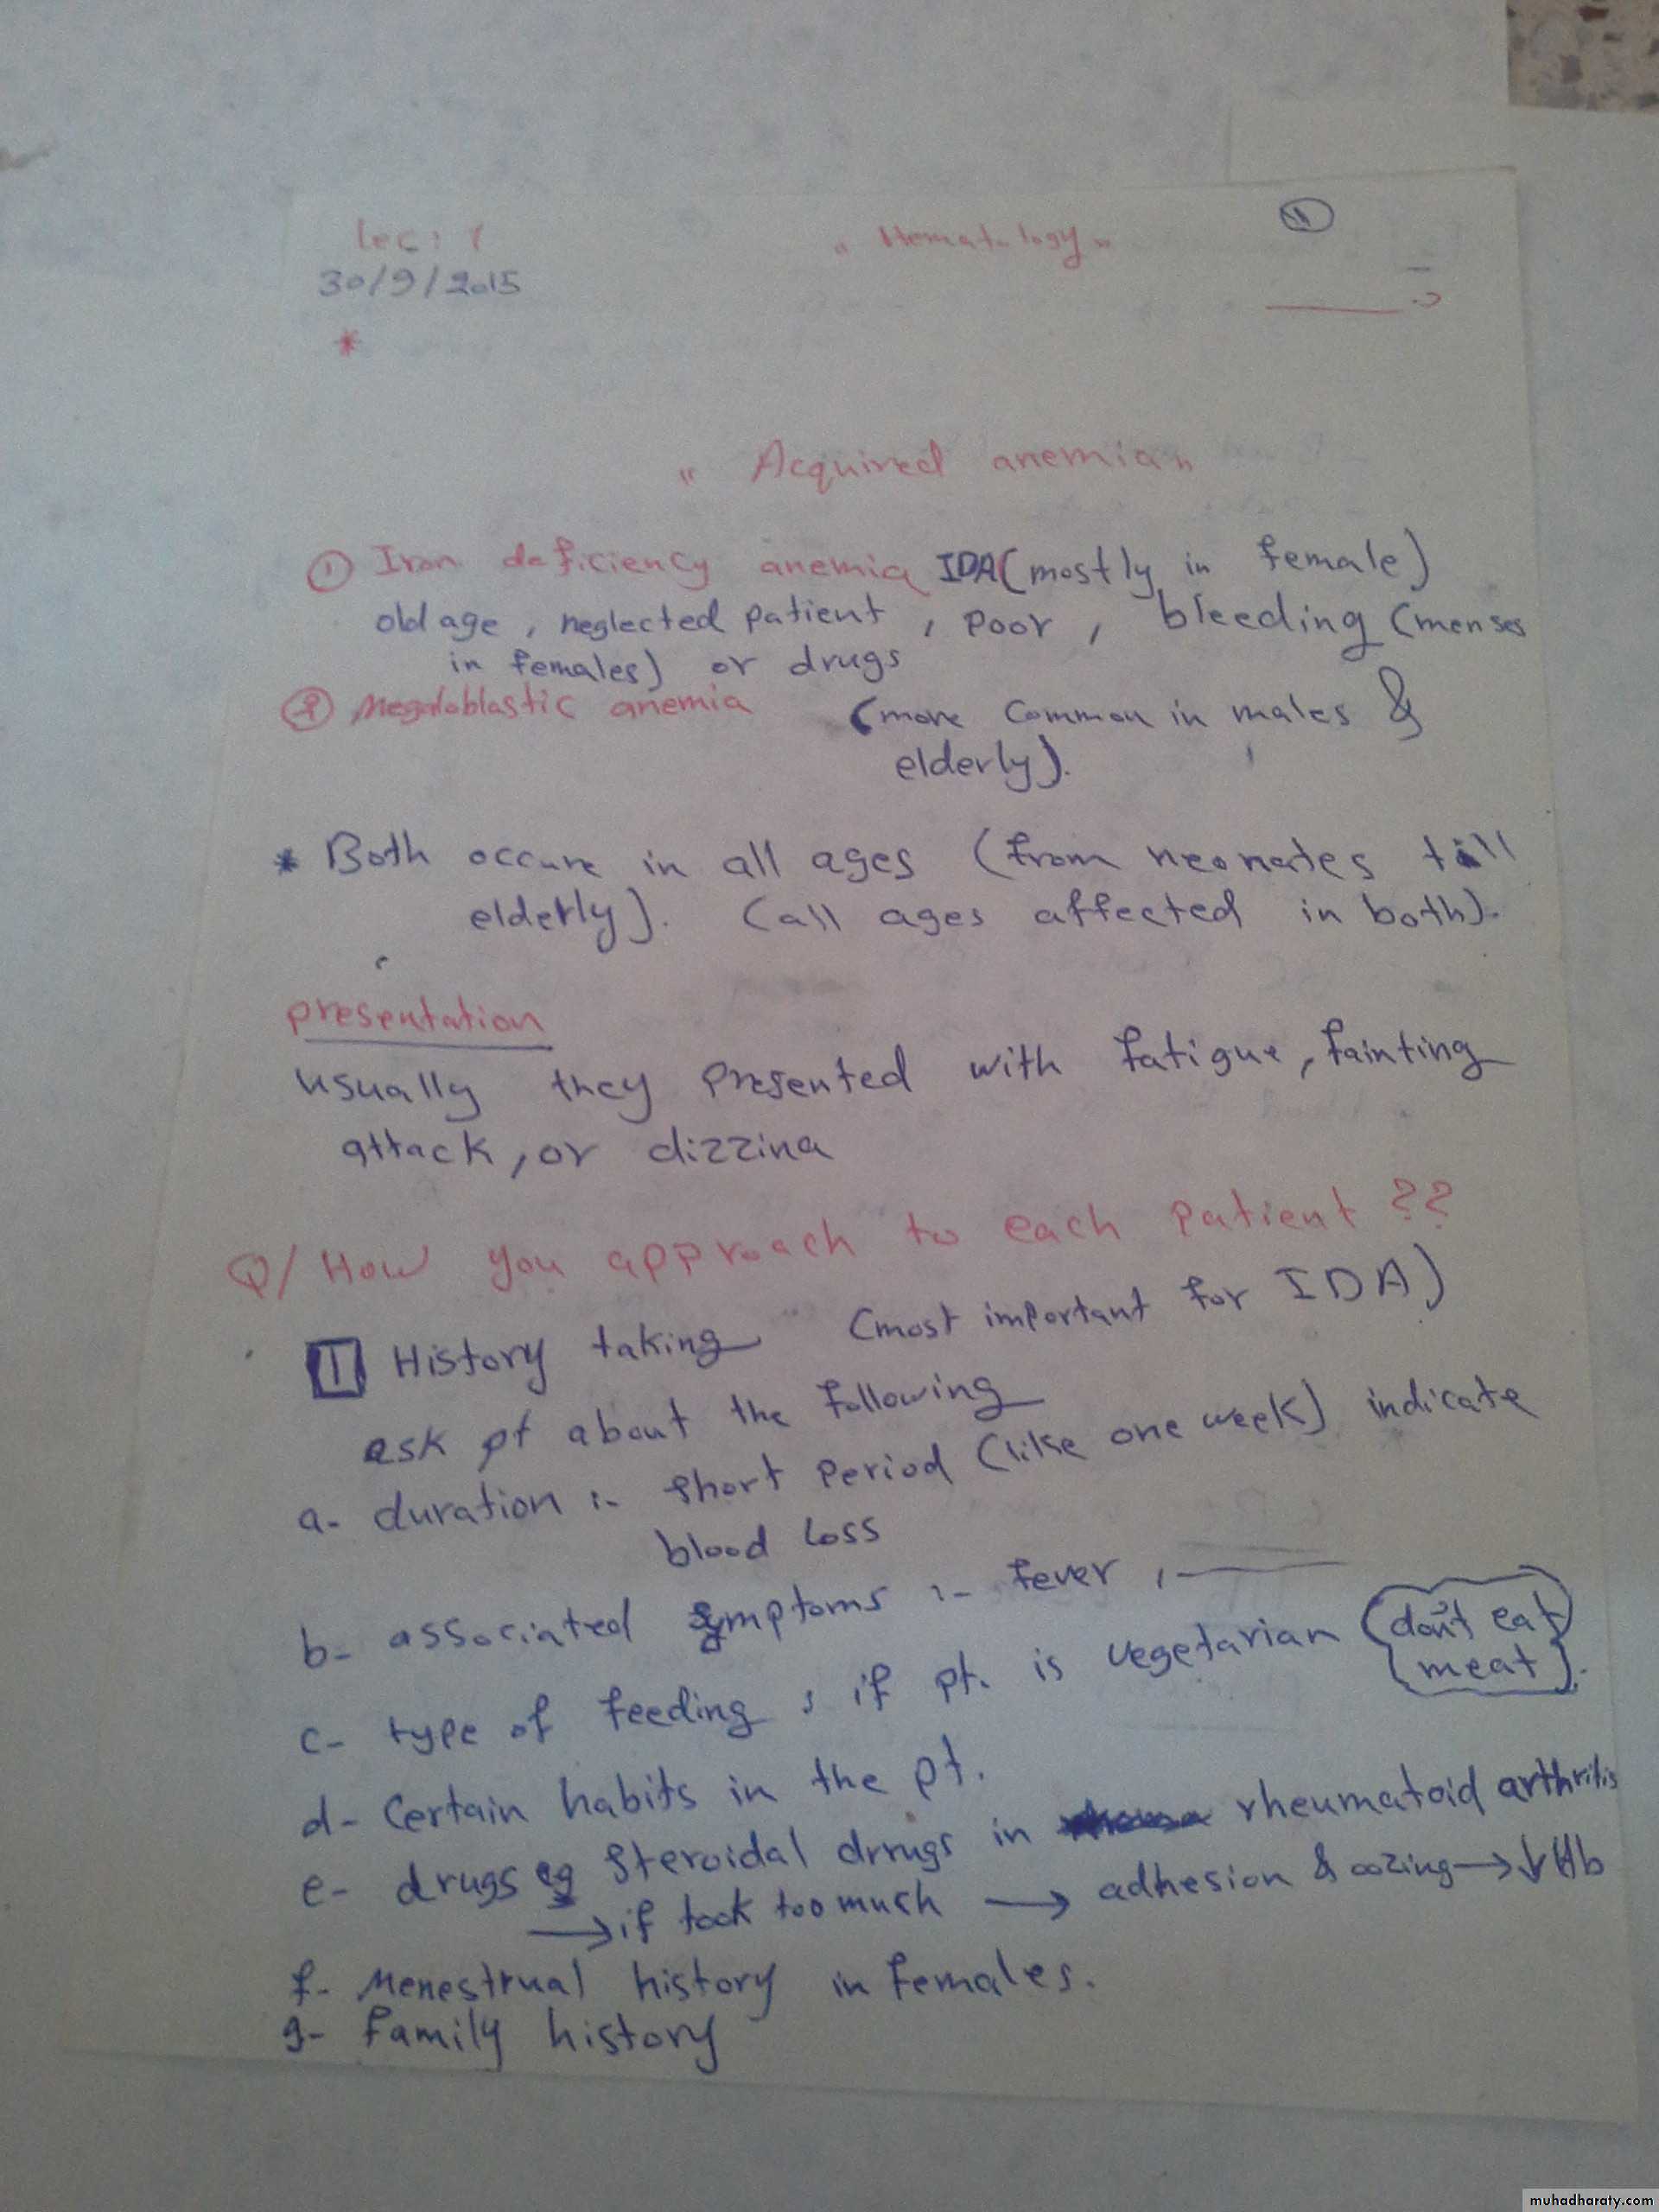 lec: 1 " Hematology "
30/9/2015
*
" Acquired anemia "
① Iron deficiency anemia IDA (mostly in female)
old age , neglected patient , poor , bleeding (menses
in females) or drugs
② Megaloblastic anemia (more common in males &
elderly).
* Both occure in all ages (from neonates till
elderly). (all ages affected in both).
presentation
usually they presented with fatigue, fainting
attack, or dizzina
Q/ How you approach to each patient ??
1 History taking (most important for IDA)
ask pt about the following
a- duration :- short period (like one week) indicate
blood loss
b- associated symptoms :- fever ,
c- type of feeding , if pt. is vegetarian (don't eat
meat).
d- Certain habits in the pt.
e- drugs eg steroidal drrugs in rheumatoid arthritis
→ if took too much → adhesion & oozing → ↓ Hb
f- Menestrual history in females.
g- family history
muhadharaty.com